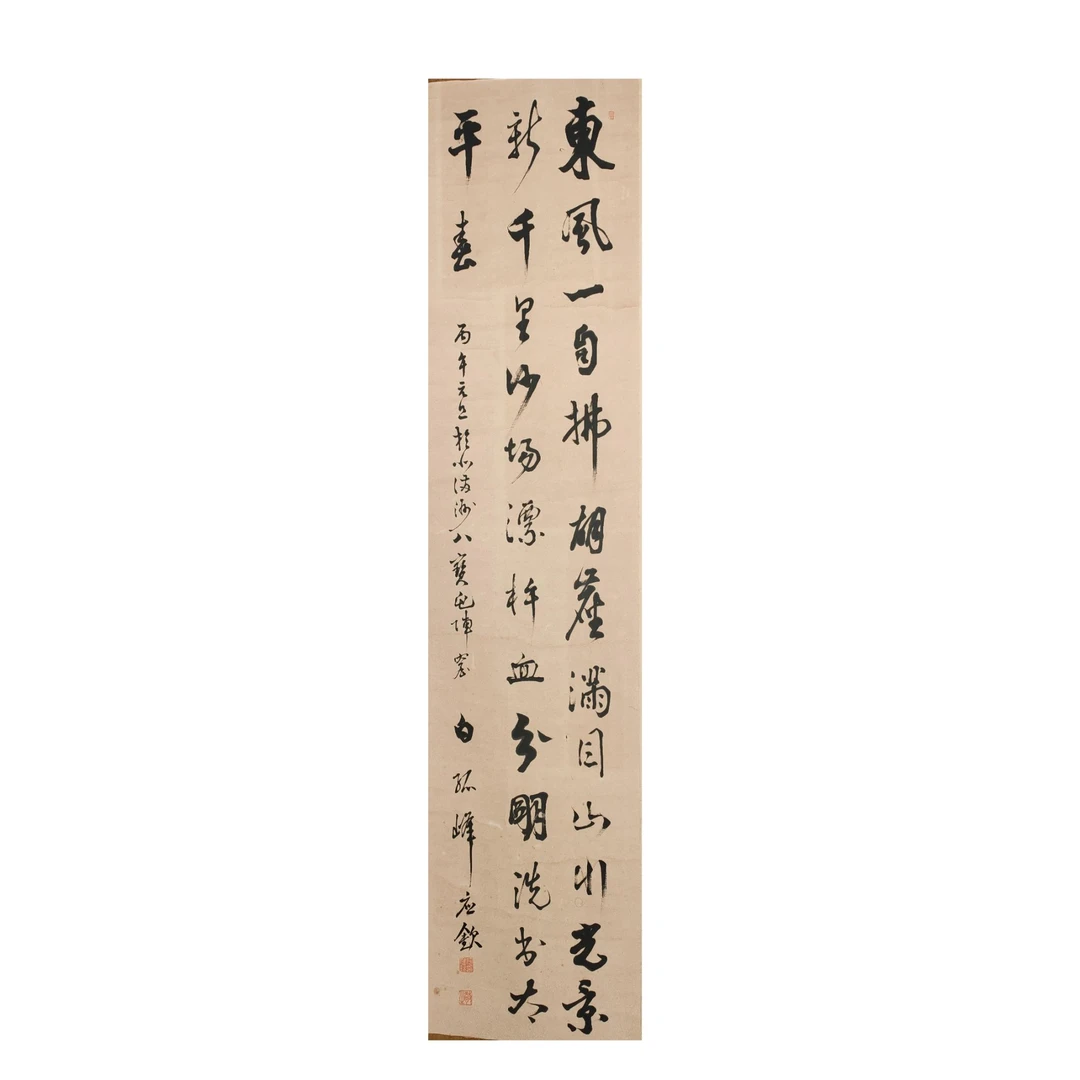 東風一自拂胡塵滿目山川光景
新千里沙场漂杵血分明洗出太
平春 丙午元旦於北滿洲八寶屯陣 白孤峰应欽